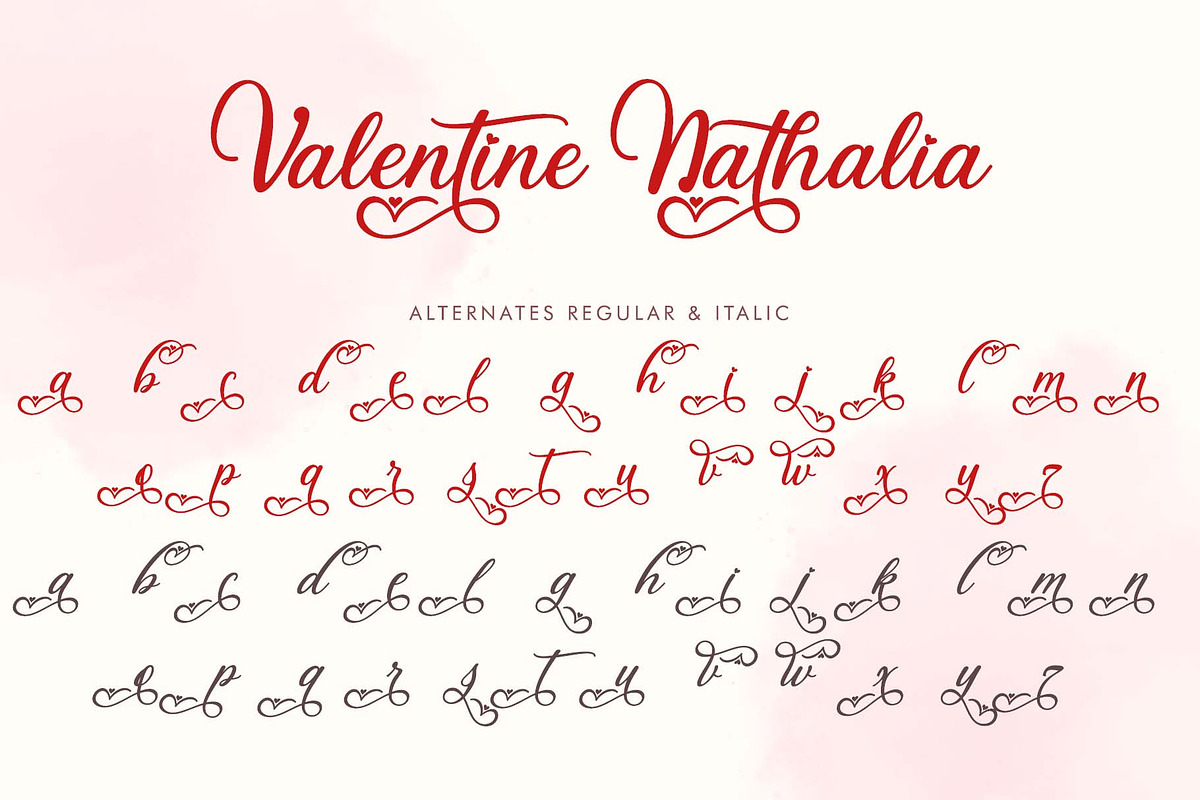 Valentine Nathalia
ALTERNATES REGULAR & ITALIC
a b c d e l g h i j k l m n
o p q r s t u v w x y z
a b c d e l g h i j k l m n
o p q r s t u v w x y z